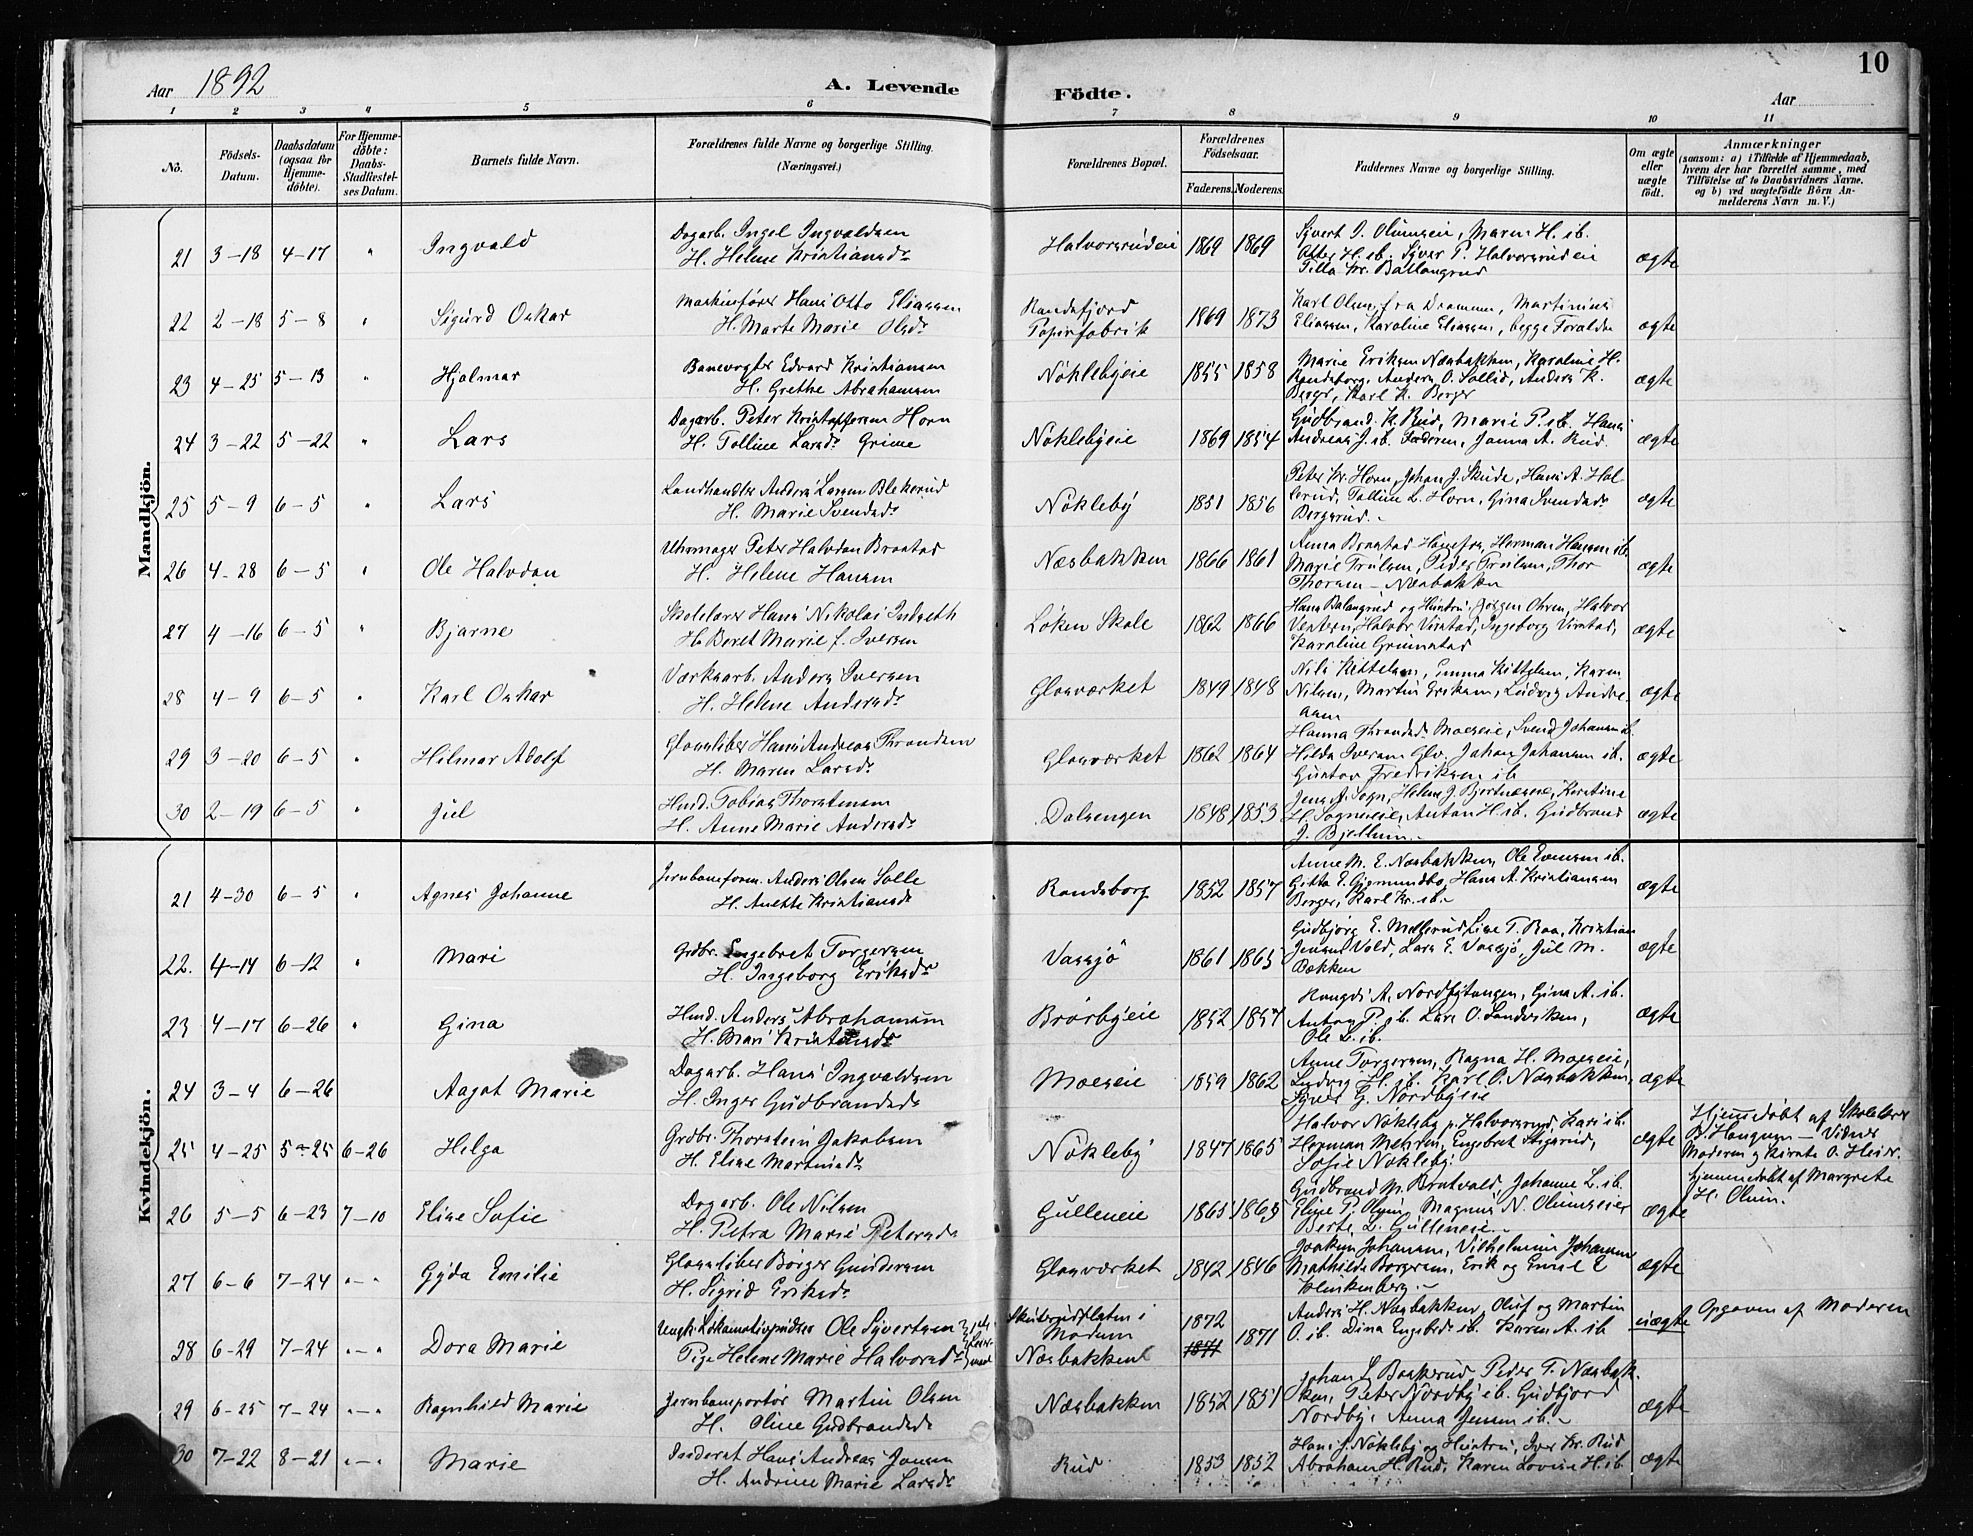 10
Aar 1892 A. Levende Födte. Aar
1 2 3 4 5 6 7 8 9 10 11
No. Födsels-Datum. Daabsdatum (ogsaa for Hjemme-döbte). For Hjemme-döbte: Daabs-Stadfæstel-ses Datum. Barnets fulde Navn. Forældrenes fulde Navne og borgerlige Stilling. (Næringsvei.) Forældrenes Bopæl. Forældrenes Födselsaar. Faderens. Moderens. Faddernes Navne og borgerlige Stilling. Om ægte eller uægte födt. Anmærkninger (saasom: a) i Tilfælde af Hjemmedaab, hvem der har forrettet samme, med Tilföielse af to Daabsvidners Navne. og b) ved uægtefödte Börn An-melderens Navn m. V.)
Mandkjön.
21 3-18 4-17 " Ingvald Dagarb. Ingel Ingvaldsen
H. Helene Kristiansdr Halvorsrudeie 1869 1869 Syvert O. Olumseie, Maren H. ib.
Otter H. ib. Syver P. Halvorsrudeie
Tilla Kr. Ballangrud ægte
22 2-18 5-8 " Sigurd Oskar Maskinfører Hans Otto Eliassen
H. Marte Marie Olsdr Randsfjord
Papirfabrik 1869 1873 Karl Olsen fra Drammen, Martinius
Eliassen, Karoline Eliassen, begge Forældre ægte
23 4-25 5-13 " Hjalmar Banevogter Edvard Kristiansen
H. Grethe Abrahamsen Nøklebyeie 1855 1858 Marie Eriksen Næsbakken, Karoline H.
Randsborg, Anders O. Sollid, Anders K.
Berger, Karl K. Berger ægte
24 3-22 5-22 " Lars Dagarb. Peter Kristoffersen Horn
H. Tolline Larsdr Grime Nøklebyeie 1869 1854 Gudbrand K. Rud, Marie P. ib. Hans
Andreas J. ib. Faderen, Janna A. Rud. ægte
25 5-9 6-5 " Lars Landhandler Anders Larsen Blekerud
H. Marie Svendsdr Nøkleby 1851 1856 Peter Kr. Horn, Johan J. Skude, Hans A. Hal-
lerud, Tolline L. Horn, Gina Svendsdr
Bergerud. ægte
26 4-28 6-5 " Ole Halvdan Uhrmager Peter Halvdan Braatad
H. Helene Hansen Næsbakken 1866 1861 Anna Braatad Hønefos, Herman Hansen ib.
Marie Trulsen, Peder Trulsen, Thor
Thorsen - Næsbakken ægte
27 4-16 6-5 " Bjarne Skolelærer Hans Nikolai Indseth
H. Beret Marie f. Iversen Løken Skole 1862 1866 Hans Balangrud og Hustru, Jørgen Ohren, Halvor
Vestern, Halvor Virstad, Ingeborg Virstad,
Karoline Grinnstad ægte
28 4-9 6-5 " Karl Oskar Værksarb. Anders Iversen
H. Helene Andersdr Glasværket 1849 1848 Nils Kittelsen, Emma Kittelsen, Karen
Nilsen, Martin Eriksen, Ludvig Andre-
asen ægte
29 3-20 6-5 " Hilmar Adolf Glassliber Hans Andreas Throndsen
H. Maren Larsdr Glasværket 1862 1864 Hanna Throndsdr Moeseie, Svend Johansen ib.
Hilda Iversen Glv. Johan Johansen ib.
Gustav Fredriksen ib ægte
30 2-19 6-5 " Jul Husd. Tobias Thorstensen
H. Anne Marie Andersdr Dalsengen 1848 1853 Jens A. Sogn, Helene J. Bjertneseie, Kirstine
H. Sognseie, Anton H. ib. Gudbrand
J. Bjellum. ægte
Kvindekjön.
21 4-30 6-5 " Agnes Johanne Jernbaneform. Anders Olsen Solle
H. Anette Kristiansdr Randsborg 1852 1857 Anne M. E. Næsbakken, Ole Evensen ib.
Gitta E. Gjermundbo, Hans A. Kristiansen
Berger, Karl Kr. ib. ægte
22. 4-14 6-12 " Mari Grdbr. Engebret Torgersen
H. Ingeborg Eriksdr Vassjø 1861 1865 Gudbjørg E. Mælerud, Lise T. Raa, Kristian
Jensen Vold, Lars E. Vassjø, Jul M.
Bækken ægte
23 4-17 6-26 " Gina Husd. Anders Abrahamsen
H. Mari Brørbyeie 1852 1857 A. Nordbytangen, Gina A. ib.
Anton P. ib. Lars O. Sandviken,
Ole L. ib. ægte
24 3-4 6-26 Aagot Marie Dagarb. Hans Ingvaldsen
H. Inger Gudbrandsdr Moeseie 1859 1862 Anne Torgersen, Ragna H. Moeseie,
Ludvig H. ib. Karl O. Næsbakken,
Syver G. Nordbyeie ægte
25 4-25 5-25 6-26 Helga Grdbr. Thorstein Jakobsen
H. Eline Martinsdr Nøkleby 1847 1865 Halvor Nøkleby p. Halvorsrud, Kari ib.
Herman Mehren, Engebret Stigsrud,
Sofie Nøkleby. ægte Hjemdøbt af Skolelærer
B. Haugnæs - Vidner
Moderen og Kirsti O. Heier.
26 5-5 6-23 7-10 Eline Sofie Dagarb. Ole Nilsen
H. Petra Marie Petersdr Gulleneie 1865 1865 Gudbrand M. Bratvald, Johanne L. ib.
Eline P. Olum, Magnus N. Olumseie,
Berte L. Gulleneie. ægte hjemmedøbt af Margrete
H. Olum.
27 6-6 7-24 "-" Gyda Emilie Glassliber Børger Gundersen
H. Sigrid Eriksdr Glasværket 1842 1846 Joakim Johansen, Vilhelmine Johansen
Mathilde Børgersen, Erik og Emil E
Klinkenberg. ægte
28 6-29 7-24 "-" Dora Marie Ungk. Lokomotivpudser Ole Syvertsen
Pige Helene Marie Halvorsdr Skuterudflaten i
Modum
Næsbakken 1872
1871 1871 Anders H. Næsbakken, Oluf og Martin
O. ib. Dina Engebrdr ib. Karen A. ib uægte Opgaven af Moderen
29 6-25 7-24 "-" Ragnhild Marie Jernbaneportør Martin Olsen
H. Oline Gudbrandsdr Næsbakken 1852 1851 Johan L Bakkerud Peder T. Næsbak-
ken, Peter Nordby ib. Gudbjord
Nordby, Anna Jensen ib. ægte
30 7-22 8-21 "-" Marie Inderst Hans Andreas Jonsen
H. Andrine Marie Larsdr Rud 1853 1852 Hans J. Nøkleby og Hustru, Iver Kr. Rud
Abraham H. Rud, Karen Lovise H. ib ægte